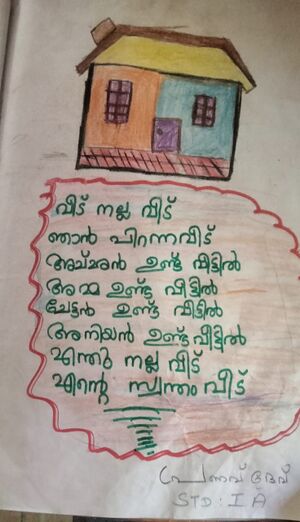 വീട് നല്ല വീട്
ഞാൻ പിറന്നവീട്
അച്ഛൻ ഉണ്ടു വീട്ടിൽ
അമ്മ ഉണ്ടു വീട്ടിൽ
ചേട്ടൻ ഉണ്ടു വീട്ടിൽ
അനിയൻ ഉണ്ടുവീട്ടിൽ
എന്തു നല്ല വീട്
എന്റെ സ്വന്തം വീട്
പ്രണവ് ദേവ്
STD: I A